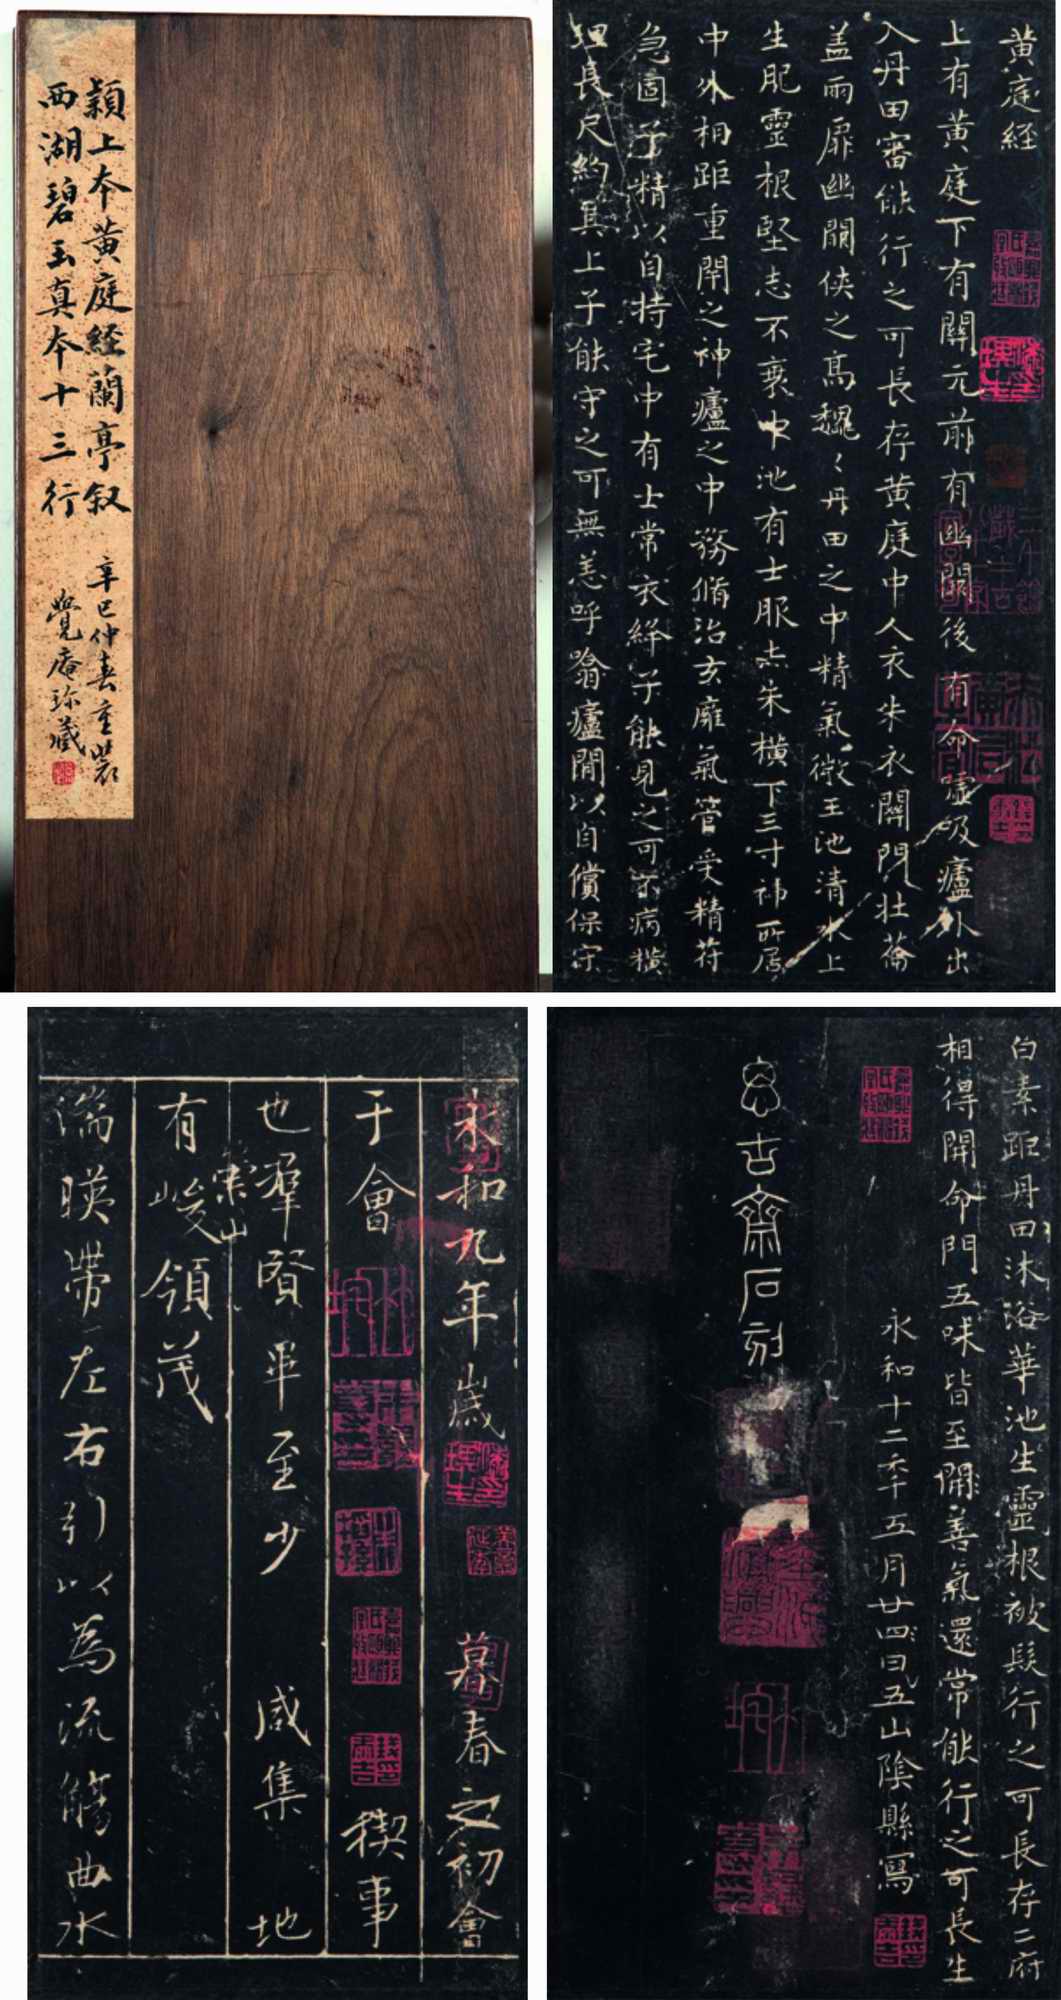 潁上本黃庭經蘭亭叙
西湖碧玉真本十三行
辛巳仲春重裝
覺庵珎藏
黃庭経
上有黃庭下有關元前有幽闕後有命噓吸廬外出
入丹田審能行之可長存黃庭中人衣朱衣關門壯蘥
盖兩扉幽闕俠之高魏〻丹田之中精氣微玉池清水上
生肥靈根堅志不衰中池有士服赤朱橫下三寸神所居
中外相距重閇之神廬之中務脩治玄廱氣管受精符
急固子精以自持宅中有士常衣絳子能見之可不病橫
理長尺約其上子能守之可無恙呼翕廬閒以自償保守
白素距丹田沐浴華池生靈根被髮行之可長存二府
相得開命門五味皆至開善氣還常能行之可長生
永和十二年五月廿四日五山陰縣寫
思古齋石刻
永和九年歲暮春之初會
于會稧事
也羣賢畢至少咸集地
有崇山峻領茂
湍暎帶左右引以為流觴曲水